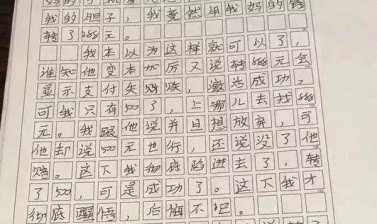 我的胆子，我竟然用我妈的钱
转了288元。
我本以为这样就可以了，
谁知他变本加厉又说转888元怎
显示支付失败，激活成功。
可我只有500了，上哪儿去找888
元。我跟他说并且想放弃，可
他却说500元也行，还说没了他
赔。这下我彻底陷进去了，转
了500，可是成功了。这下我才
彻底醒悟，后悔不已。